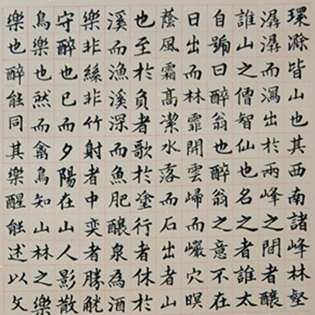 環滁皆山也其西南諸峰林壑
潺潺而瀉出於兩峰之間者釀
誰山之僧智仙也名之者誰太
自號曰醉翁也醉翁之意不在
日出而林霏開雲歸而巖穴暝
蔭風霜高潔水落而石出者山
也至於負者歌於塗行者休於
溪而漁溪深而魚肥釀泉為酒
樂非絲非竹射者中奕者勝觥
守醉也已而夕陽在山人影散
鳥樂也然而禽鳥知山林之樂
樂也醉能同其樂醒能述以文